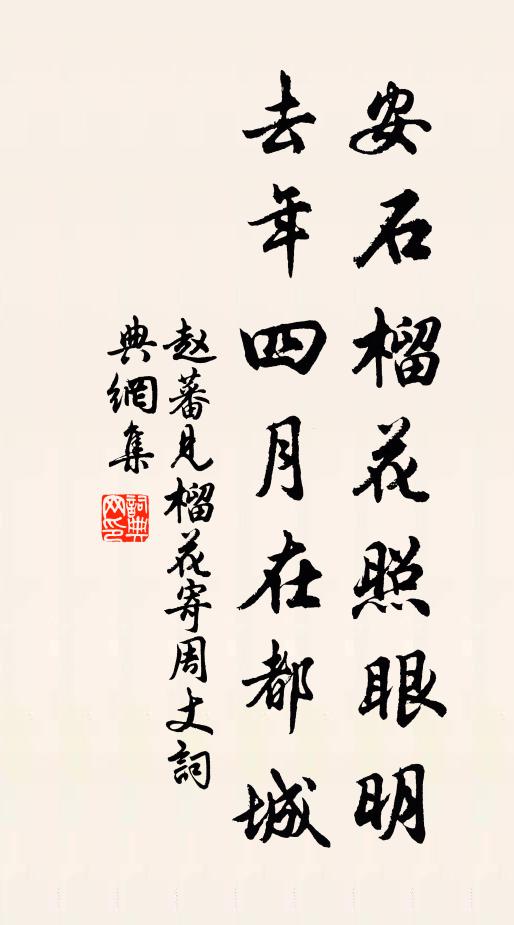 安石榴花照眼明
去年四月在都城
赵蕃见榴花寄周丈詞
典網集
詞典网印